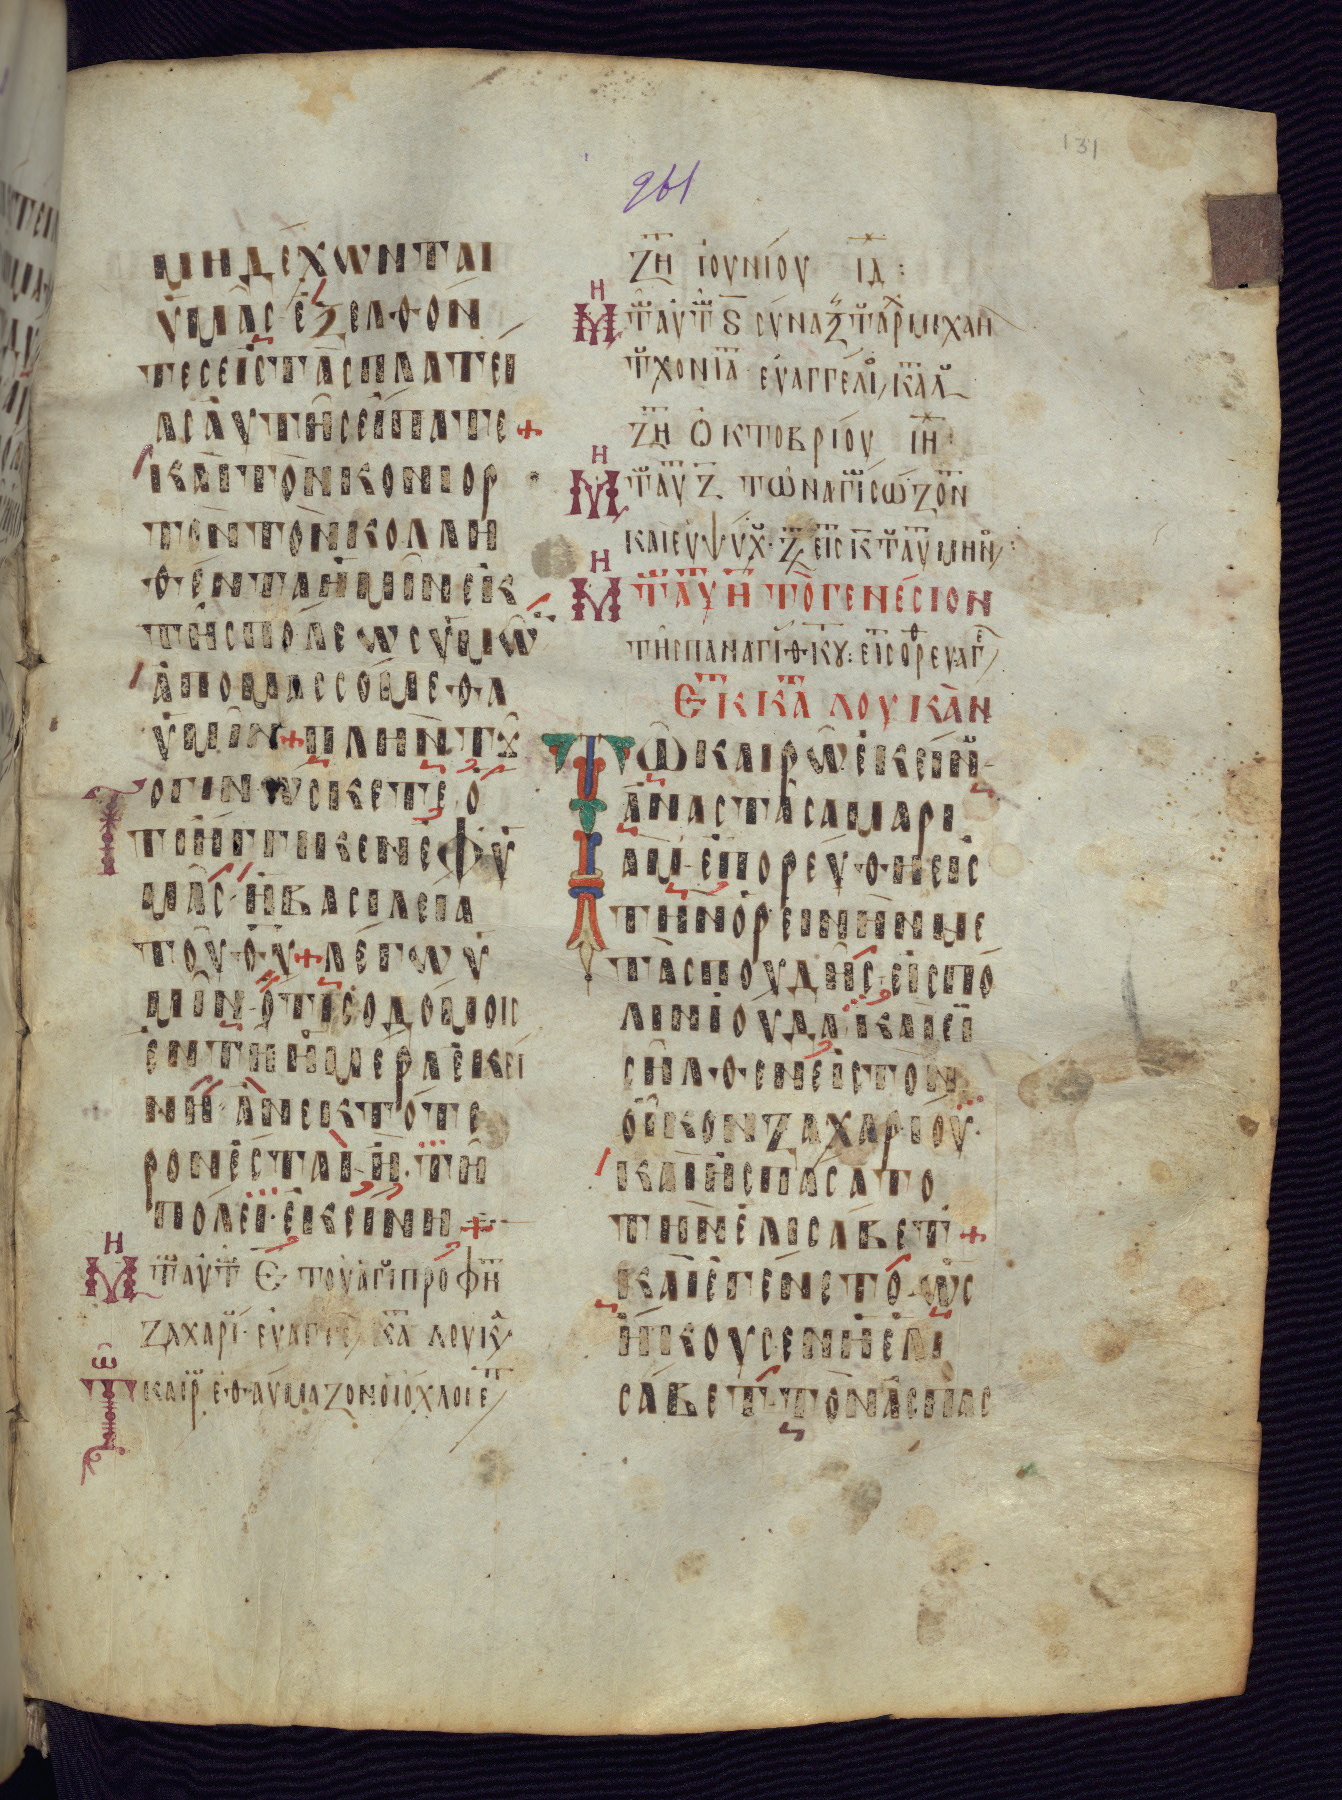 131
261
ΜΗΔΕΧΩΝΤΑΙ
ΥΜΑΣ ΕΞΕΛΘΟΝ
ΤΕΣ ΕΙΣ ΤΑΣ ΠΛΑΤΕΙ
ΑΣ ΑΥΤΗΣ ΕΙΠΑΤΕ +
ΚΑΙ ΤΟΝ ΚΟΝΙΟΡ
ΤΟΝ ΤΟΝ ΚΟΛΛΗ
ΘΕΝΤΑ ΗΜΙΝ ΕΚ
ΤΗΣ ΠΟΛΕΩΣ ΥΜΩ
ΑΠΟΜΑΣΣΟΜΕΘΑ
ΥΜΙΝ + ΠΛΗΝ ΤΟΥ
ΤΟ ΓΙΝΩΣΚΕΤΕ Ο
ΤΙ ΗΓΓΙΚΕΝ ΕΦ Υ
ΜΑΣ Η ΒΑΣΙΛΕΙΑ
ΤΟΥ ΘΥ + ΛΕΓΩ Υ
ΜΙΝ ΟΤΙ ΣΟΔΟΜΟΙΣ
ΕΝ ΤΗ ΗΜΕΡΑ ΕΚΕΙ
ΝΗ ΑΝΕΚΤΟΤΕ
ΡΟΝ ΕΣΤΑΙ Η ΤΗ
ΠΟΛΕΙ ΕΚΕΙΝΗ +
ΜΗ Τ ΑΥΤ Ε ΤΟΥ ΑΓΙ ΠΡΟΦΗ
ΖΑΧΑΡΙ ΕΥΑΓΓΕ ΚΑ ΛΟΥΚ
ΤΩ ΚΑΙΡ ΕΘΑΥΜΑΖΟΝ ΟΙ ΟΧΛΟΙ Ε
ΖΗ ΙΟΥΝΙΟΥ ΙΔ :
ΜΗ Τ ΑΥΤ Ϛ ΣΥΝΑΞ Τ ΑΡΧ ΜΙΧΑΗ
Τ ΧΟΝΙΑ ΕΥΑΓΓΕΛΙ ΚΑΛ
ΖΗ ΟΚΤΟΒΡΙΟΥ ΙΗ
ΜΗ Τ ΑΥ Ζ ΤΩΝ ΑΓΙ ΣΩΖΟΝ
ΚΑΙ ΕΥΨΥΧ ΖΗ ΕΙΣ Κ Τ ΑΥ ΜΗΝ
ΜΗ Τ ΑΥ Η ΤΟ ΓΕΝΕΣΙΟΝ
ΤΗΣ ΠΑΝΑΓΙ ΘΚΟΥ : ΕΙΣ ΟΡ ΕΥΑΓ
ΕΚ ΚΑ ΛΟΥΚΑΝ
ΤΩ ΚΑΙΡΩ ΕΚΕΙΝ
ΑΝΑΣΤΑΣΑ ΜΑΡΙ
ΑΜ ΕΠΟΡΕΥΘΗ ΕΙΣ
ΤΗΝ ΟΡΕΙΝΗΝ ΜΕ
ΤΑ ΣΠΟΥΔΗΣ ΕΙΣ ΠΟ
ΛΙΝ ΙΟΥΔΑ ΚΑΙ ΕΙ
ΣΗΛΘΕΝ ΕΙΣ ΤΟΝ
ΟΙΚΟΝ ΖΑΧΑΡΙΟΥ
ΚΑΙ ΗΣΠΑΣΑΤΟ
ΤΗΝ ΕΛΙΣΑΒΕΤ +
ΚΑΙ ΕΓΕΝΕΤΟ ΩΣ
ΗΚΟΥΣΕΝ Η ΕΛΙ
ΣΑΒΕΤ ΤΟΝ ΑΣΠΑΣ